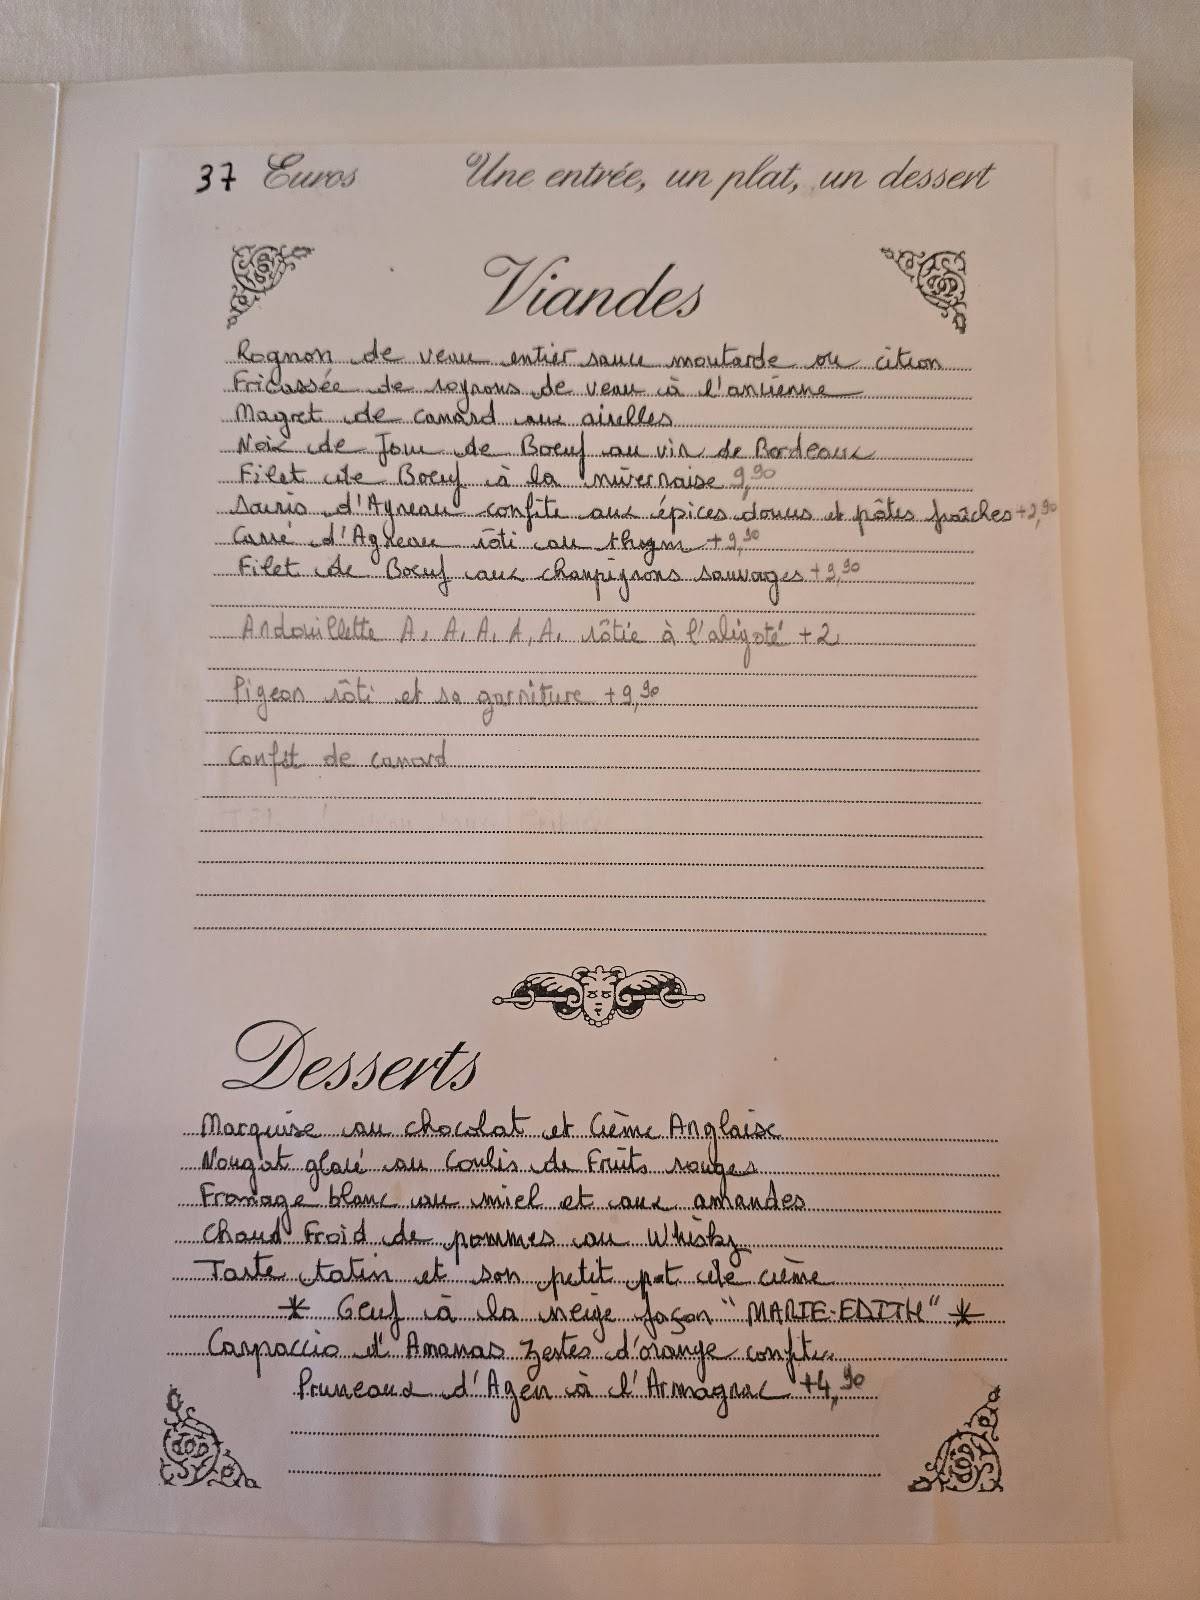 37 Euros Une entrée, un plat, un dessert
Viandes
Rognon de veau entier sauce moutarde ou citron
Fricassée de rognons de veau à l'ancienne
Magret de canard aux airelles
Noix de Joue de Boeuf au vin de Bordeaux
Filet de Boeuf à la nivernaise 9,90
Souris d'Agneau confite aux épices douces et pâtes fraîches +2,90
Carré d'Agneau rôti au thym +9,90
Filet de Boeuf aux champignons sauvages +9,90
Andouillette A, A, A, A, A, rôtie à l'aligoté +2,
Pigeon rôti et sa garniture +9,90
Confit de canard
Desserts
Marquise au chocolat et Crème Anglaise
Nougat glacé au Coulis de Fruits rouges
Fromage blanc au miel et aux amandes
Chaud Froid de pommes au Whisky
Tarte tatin et son petit pot de crème
* Oeuf à la neige façon "MARIE-EDITH" *
Carpaccio d'Ananas Zestes d'orange confites
Pruneaux d'Agen à l'Armagnac +4,90